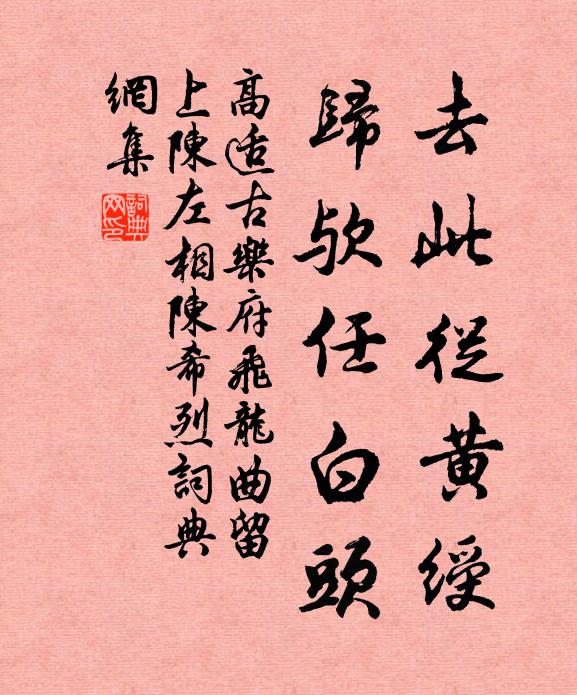 去此從黄綬
歸欤任白頭
高适古樂府飛龍曲留
上陳左相陳希烈詞典
網集
詞典網印